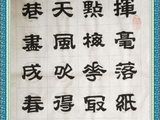 揮毫落紙
點梅華最
天風吹得
巷盡成春